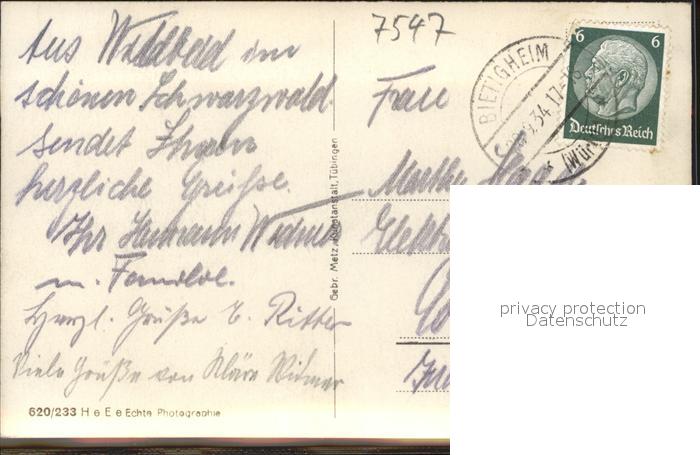 7547
Aus Wildbad im
schönen Schwarzwald
sendet Ihnen
herzliche Grüße.
Ihr Hermann Widmer
u. Familie.
Herzl. Grüße E. Ritter
Viele Grüße von Kläre Widmer
620/233 H e E e Echte Photographie
Gebr. Metz, Kunstanstalt, Tübingen
BIETIGHEIM
9.34.17
(Würt
6 6
Deutsches Reich
Frau
Martha
privacy protection
Datenschutz